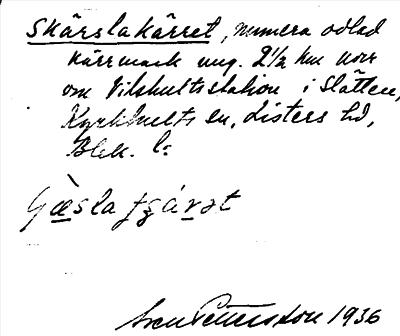 Skärslakärret, numera odlad
kärrmark ung. 2½ km norr
om Vilshultsstation i Slätten,
Kyrkhults sn, Listers hd,
Blek. l:
Sven Pettersson 1936